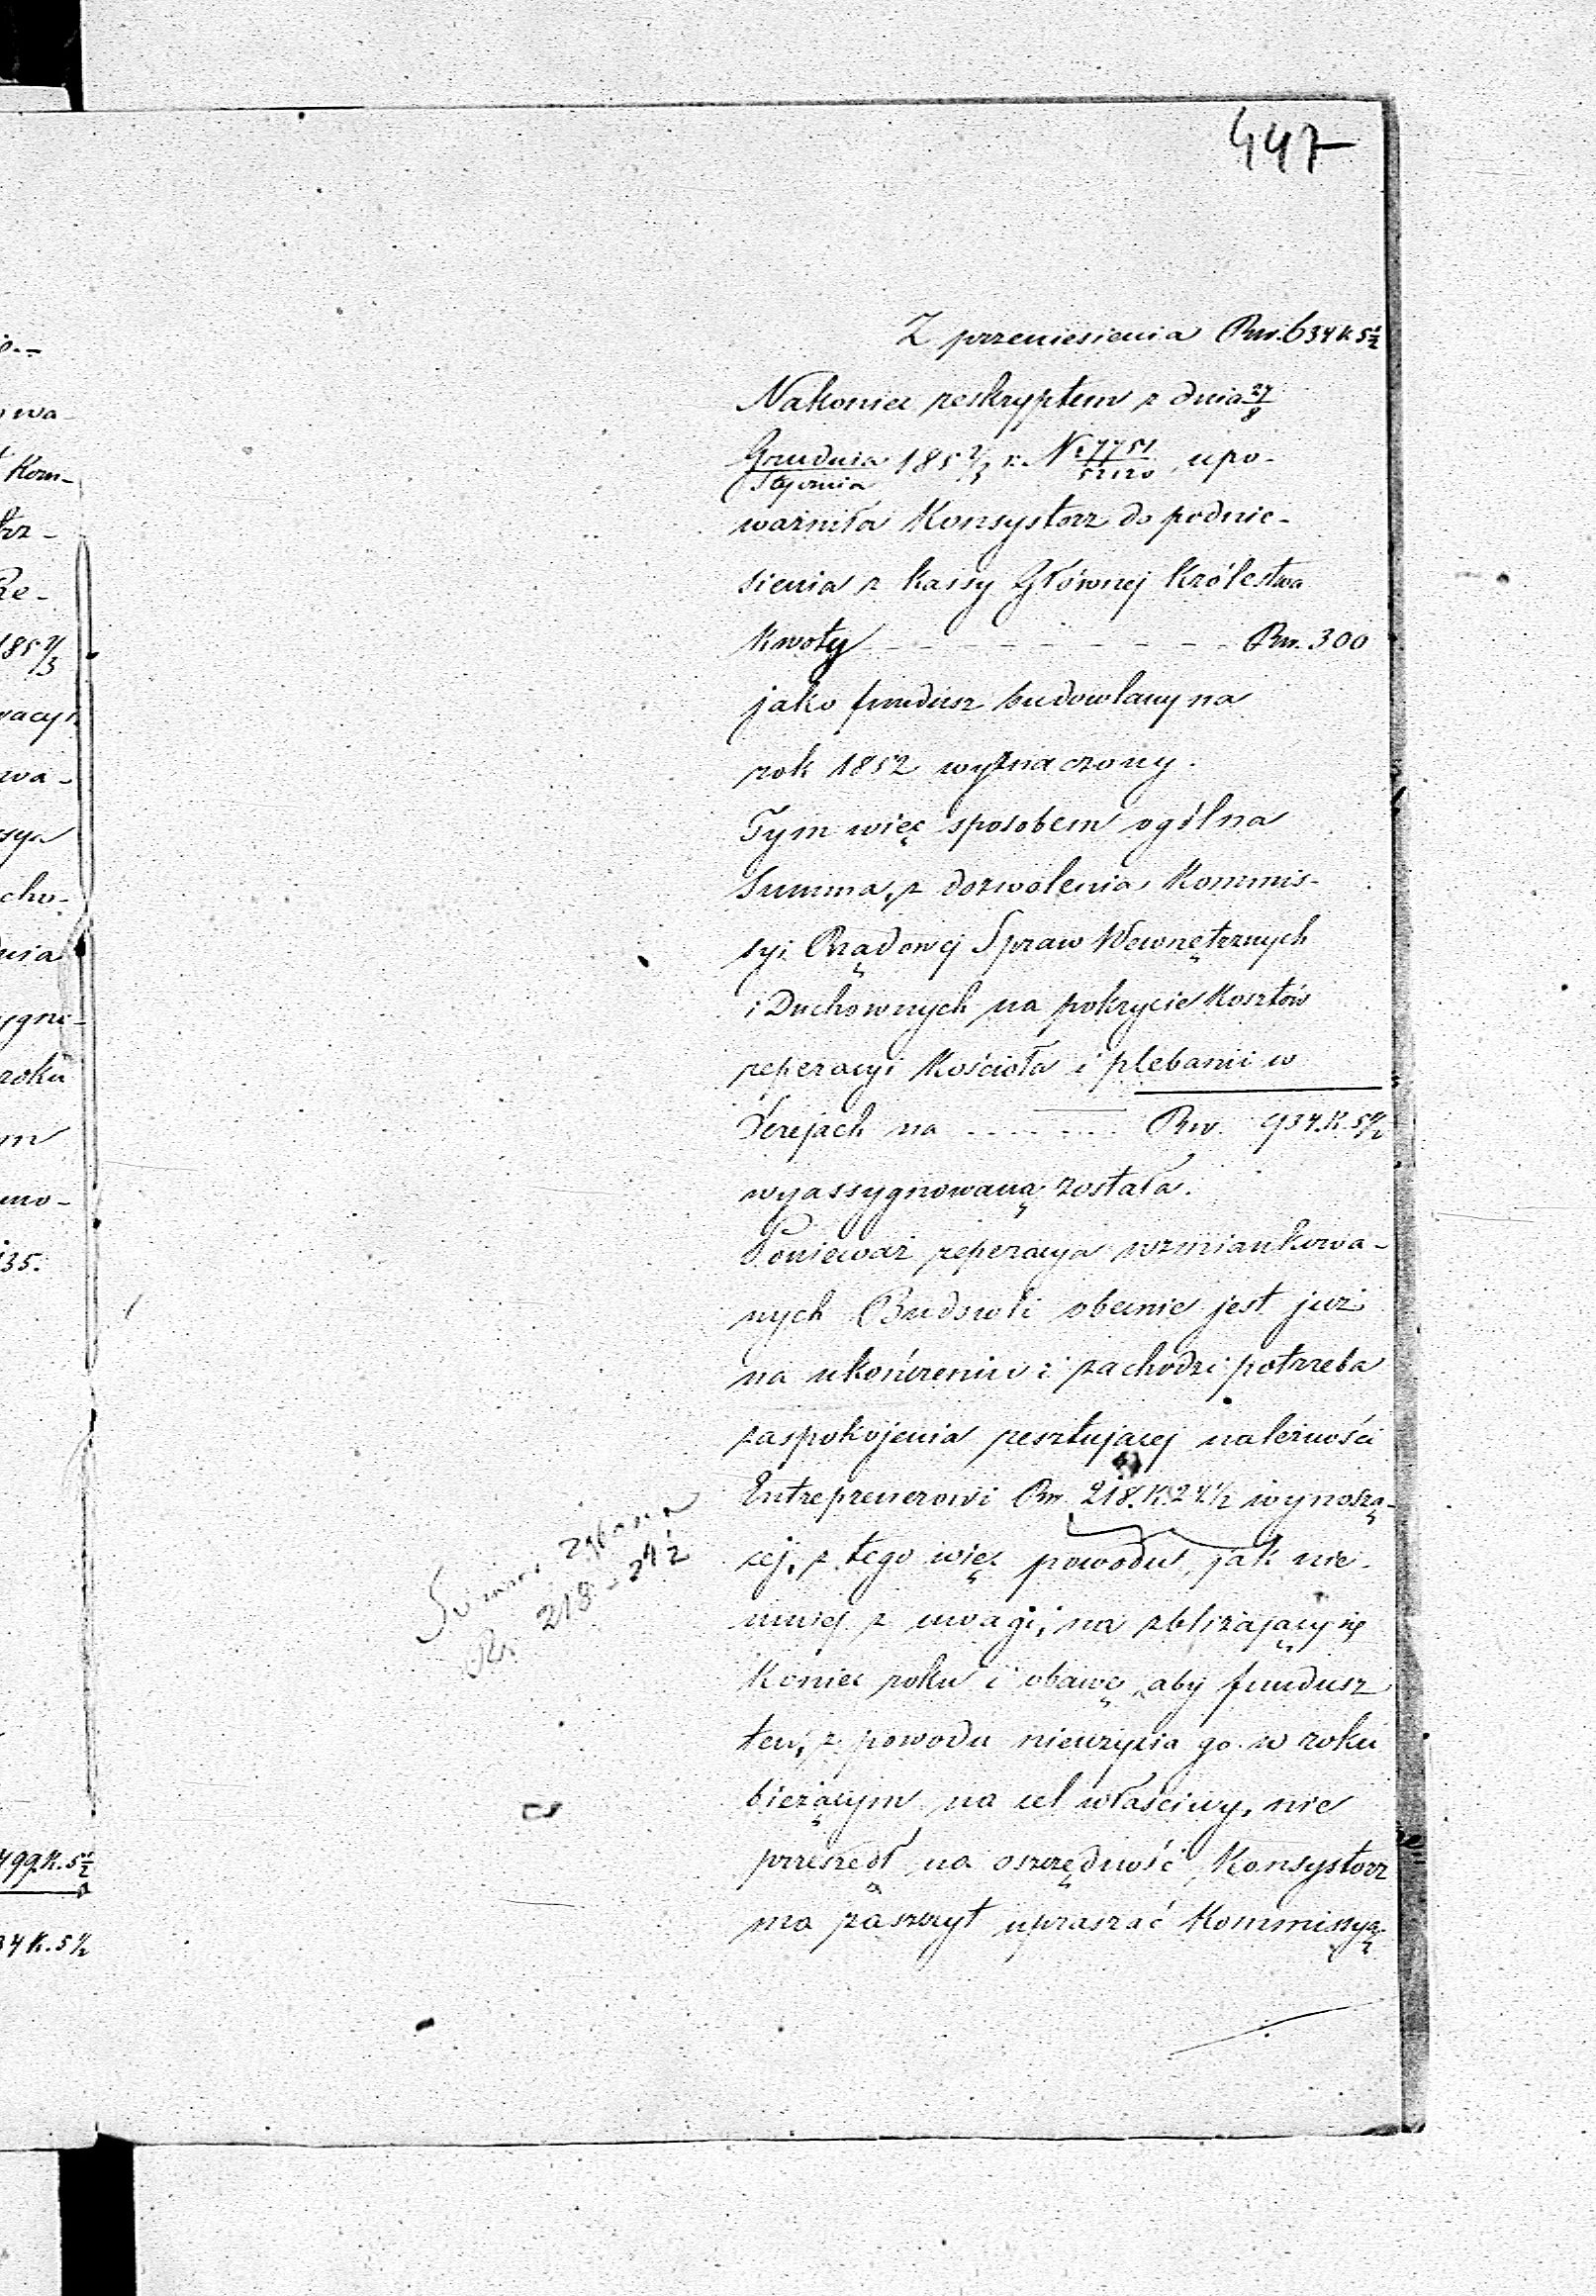 447
Z przeniesienia Rsr. 634 K 5 1/2
Nakoniec reskryptem z dnia 27/8
Grudnia/Stycznia 185 2/3 r. N. 7751/52120, upo-
ważniła Konsystorz do podnie-
sienia z kassy Głównej Królestwa
kwoty - - - - - - - - - Rsr. 300
jako fundusz budowlany na
rok 1852 wyznaczony.
Tym więc sposobem ogólna
Summa, z dozwolenia Kommis-
syi Rządowej Spraw Wewnętrznych
i Duchownych na pokrycie Kosztów
reperacyi Kościoła i plebanii w
Serejach na - - - - - - Rsr. 934. K. 5 1/2
wyassygnowaną została.
Ponieważ reperacya wzmiankowa-
nych Budowli obecnie jest już
na ukończeniu i zachodzi potrzeba
zaspokojenia resztującej należności
Entreprenerowi Rsr. 218. K. 24 1/2 wynoszą-
cej, z tego więc powodu, jak nie-
mniej z uwagi, na zbliżający się
Koniec roku i obawę, aby fundusz
ten, z powodu nieużycia go w roku
bieżącym na cel właściwy, nie
przeszedł na oszczędność, Konsystorz
ma zaszczyt upraszać Kommissyą
218 - 24 1/2
wa-
Kom-
Re-
185 2/3
wa-
cho-
roku
mo-
135.
499. K. 5 1/2
34 K. 5 1/2